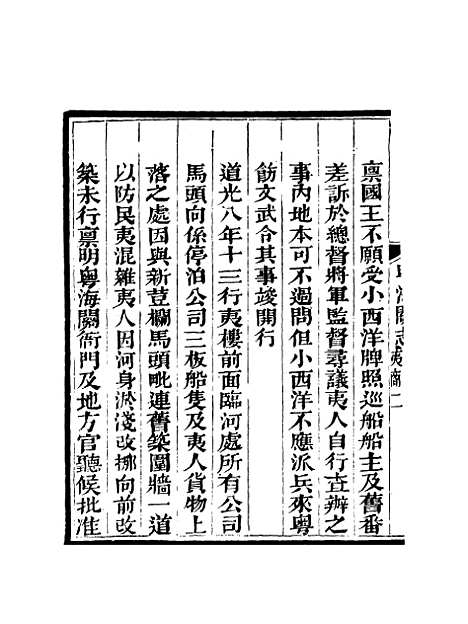 海關志夷商二
禀國王不願受小西洋牌照巡船船主及舊番
差訴於總督將軍監督尋議夷人自行查辦之
事內地本可不過問但小西洋不應派兵來粵
飭文武令其事竣開行
道光八年十三行夷樓前面臨河處所有公司
馬頭向係停泊公司三板船隻及夷人貨物上
落之處因與新荳欄馬頭毗連舊築圍牆一道
以防民夷混雜夷人因河身淤淺改挪向前改
築未行禀明粵海關衙門及地方官聽候批准